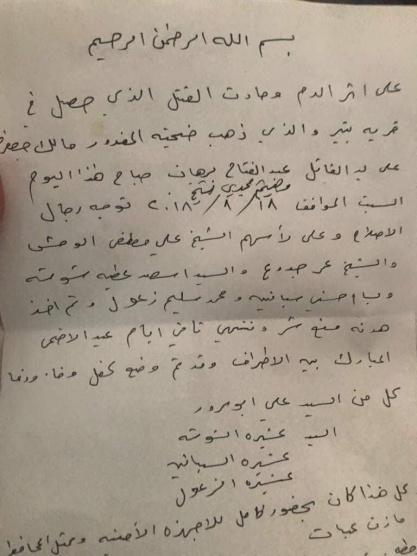 بسم الله الرحمن الرحيم
على اثر الدم وحادث القتل الذي حصل في
قريه بتير والذي ذهب ضحيته المغدور مالك
على يد القاتل عبد الفتاح برهان صباح هذا اليوم
السبت الموافق ١٨/٨/٢٠١٨ توجه رجال
الاصلاح وعلى رأسهم الشيخ علي مصطفى الوحش
والشيخ عمر جدوع والسيد اسعد عطيه شوشه
و حسني سباتيه و محمد سليم زعول وتم اخذ
هدنه منع شر وتنتهي ثاني ايام عيد الاضحى
المبارك بين الاطراف وقد تم وضع كفل وفا ودفا
كل من السيد علي ابو مرور
السيد عشيره الشوشه
عشيره السباتيه
عشيرة الزعول
كل هذا كان بحضور كامل للاجهزه الأمنيه وممثل المحافظ
مازن عبيات